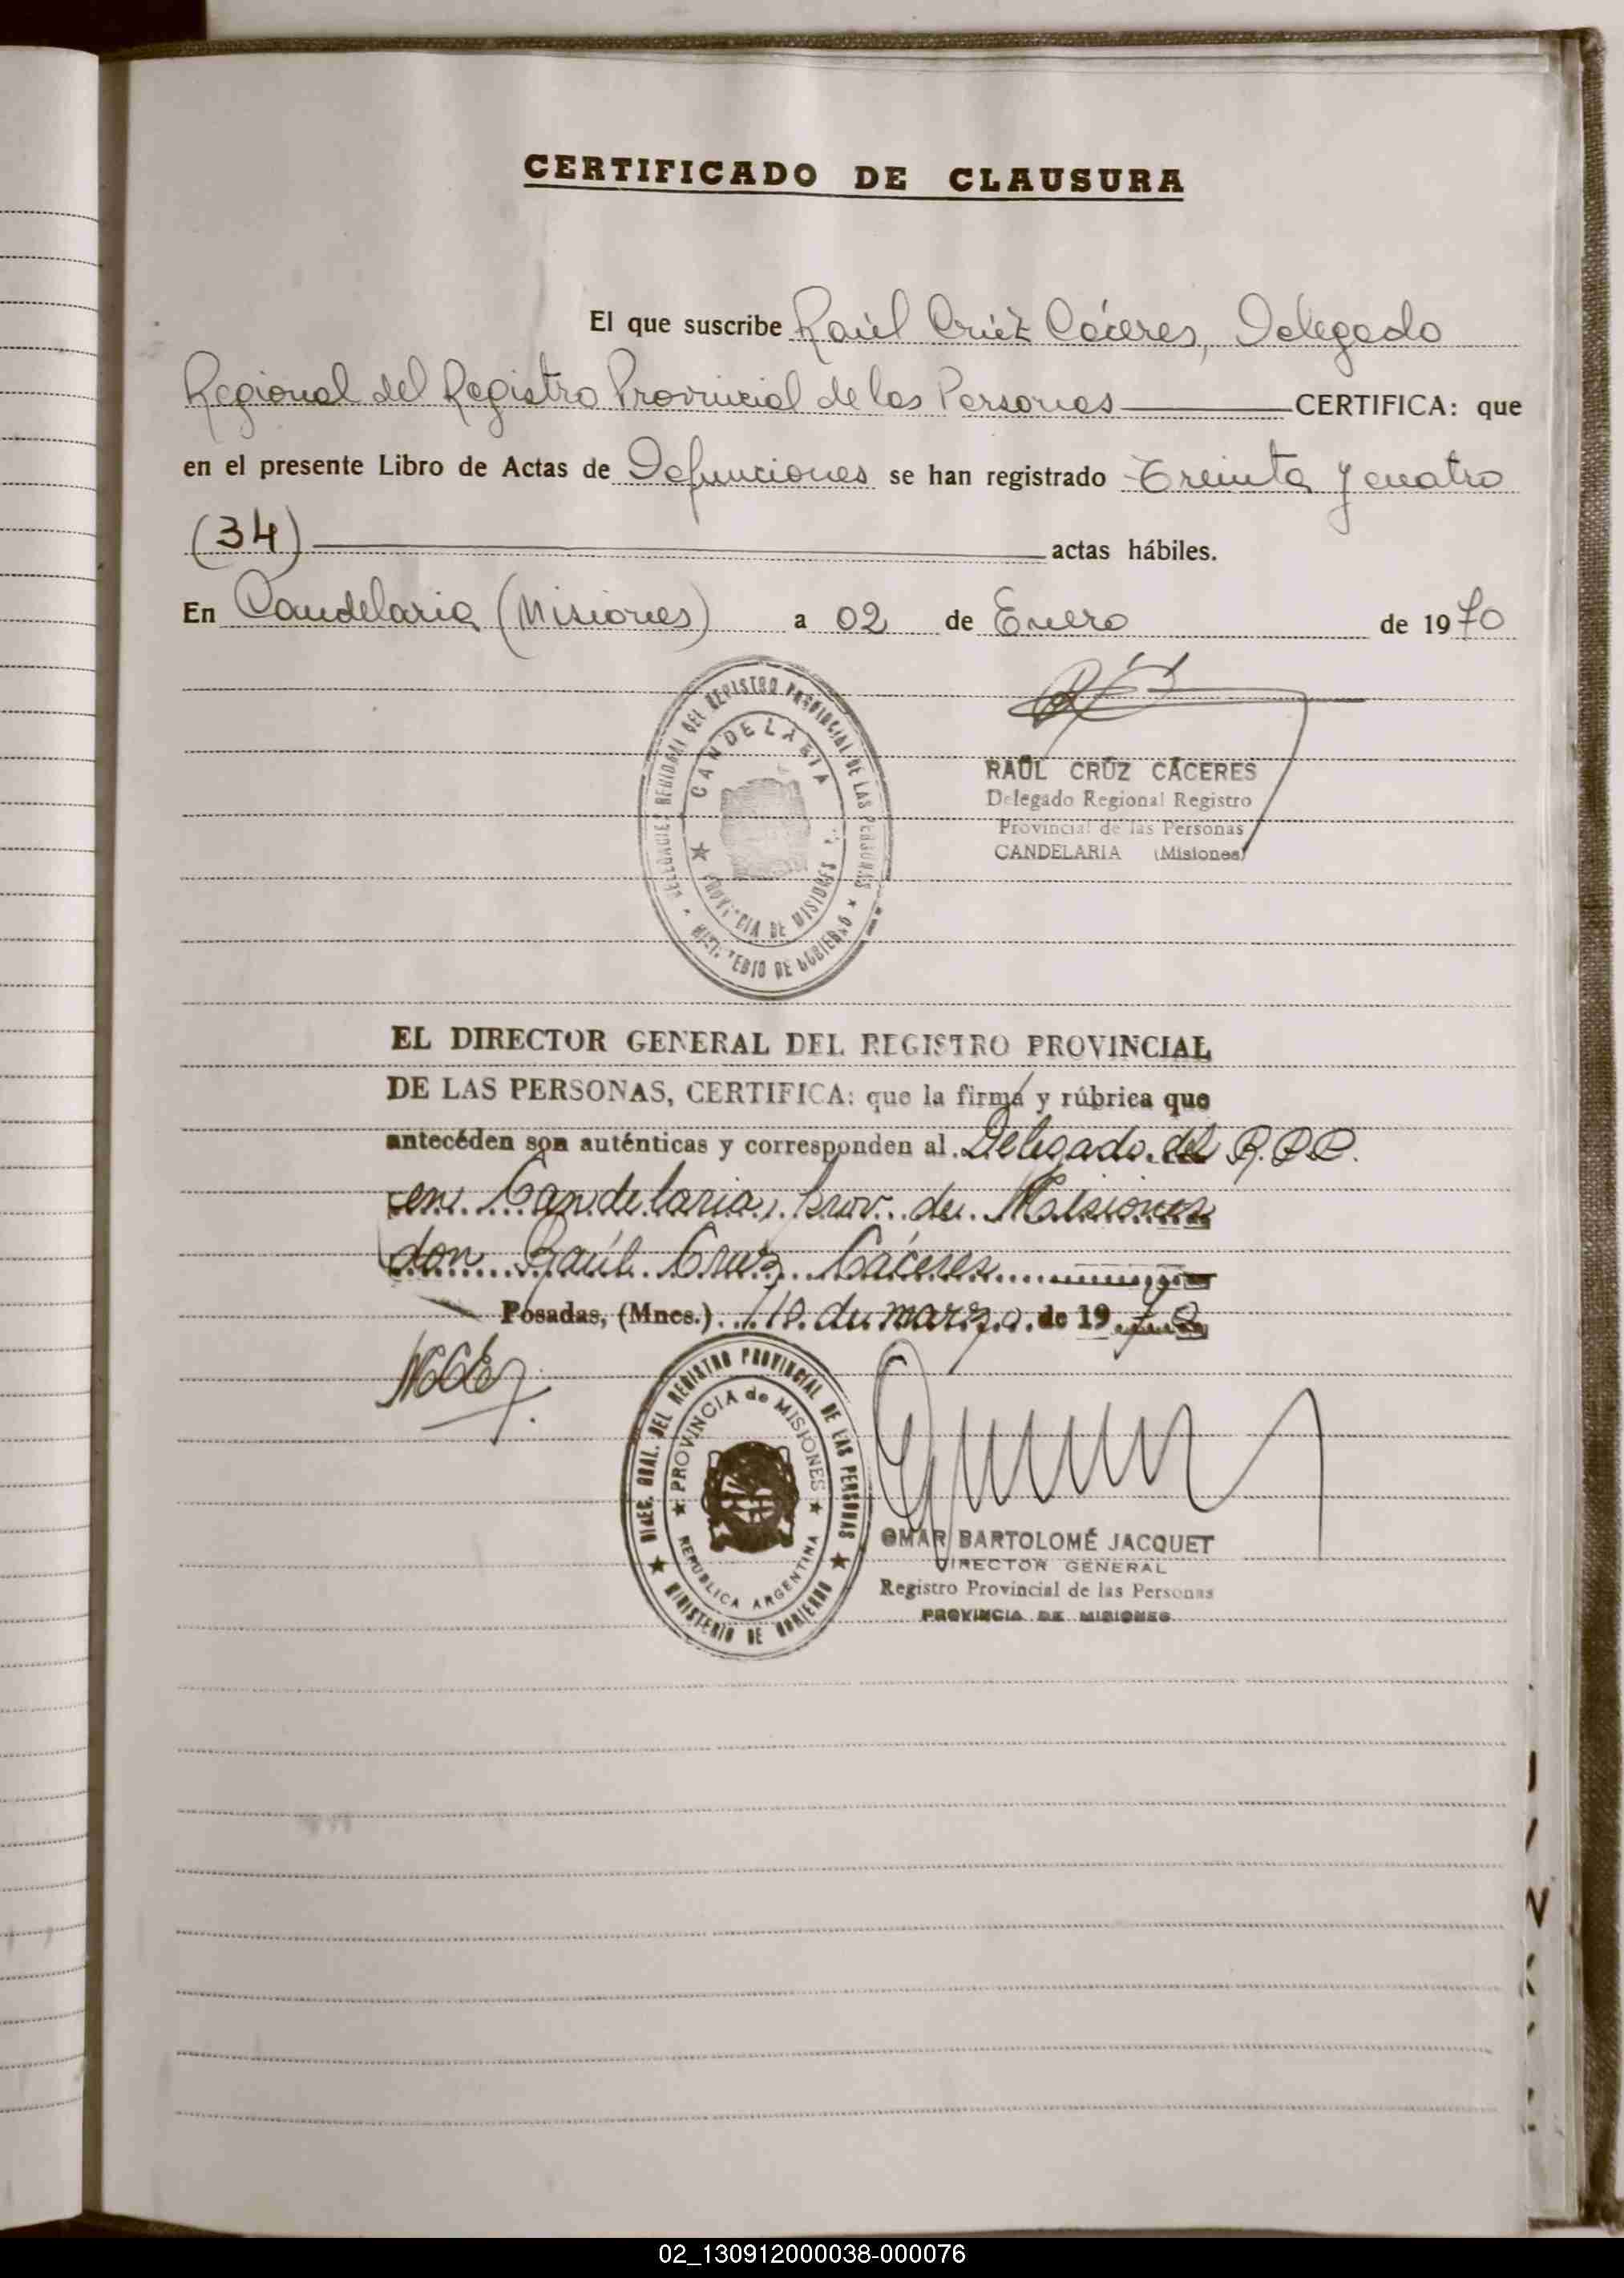 CERTIFICADO DE CLAUSURA
El que suscribe Raúl Crúz Cáceres, Delegado
Regional del Registro Provincial de las Personas CERTIFICA: que
en el presente Libro de Actas de Defunciones se han registrado Treinta y cuatro
(34) actas hábiles.
En Candelaria (Misiones) a 02 de Enero de 1970
DEL REGISTRO PROVINCIAL DE LAS PERSONAS
CANDELARIA
PROVINCIA DE MISIONES
MINISTERIO DE GOBIERNO
RAÚL CRÚZ CÁCERES
Delegado Regional Registro
Provincial de las Personas
CANDELARIA (Misiones)
EL DIRECTOR GENERAL DEL REGISTRO PROVINCIAL
DE LAS PERSONAS, CERTIFICA: que la firma y rúbrica que
antecéden son auténticas y corresponden al Delegado del R.P.P.
en Candelaria, Prov. de Misiones
don Raúl Cruz Cáceres
Posadas, (Mnes.) de marzo de 1970
DIREC. GRAL. DEL REGISTRO PROVINCIAL DE LAS PERSONAS
PROVINCIA de MISIONES
REPUBLICA ARGENTINA
MINISTERIO DE GOBIERNO
OMAR BARTOLOMÉ JACQUET
DIRECTOR GENERAL
Registro Provincial de las Personas
PROVINCIA DE MISIONES
02_130912000038-000076